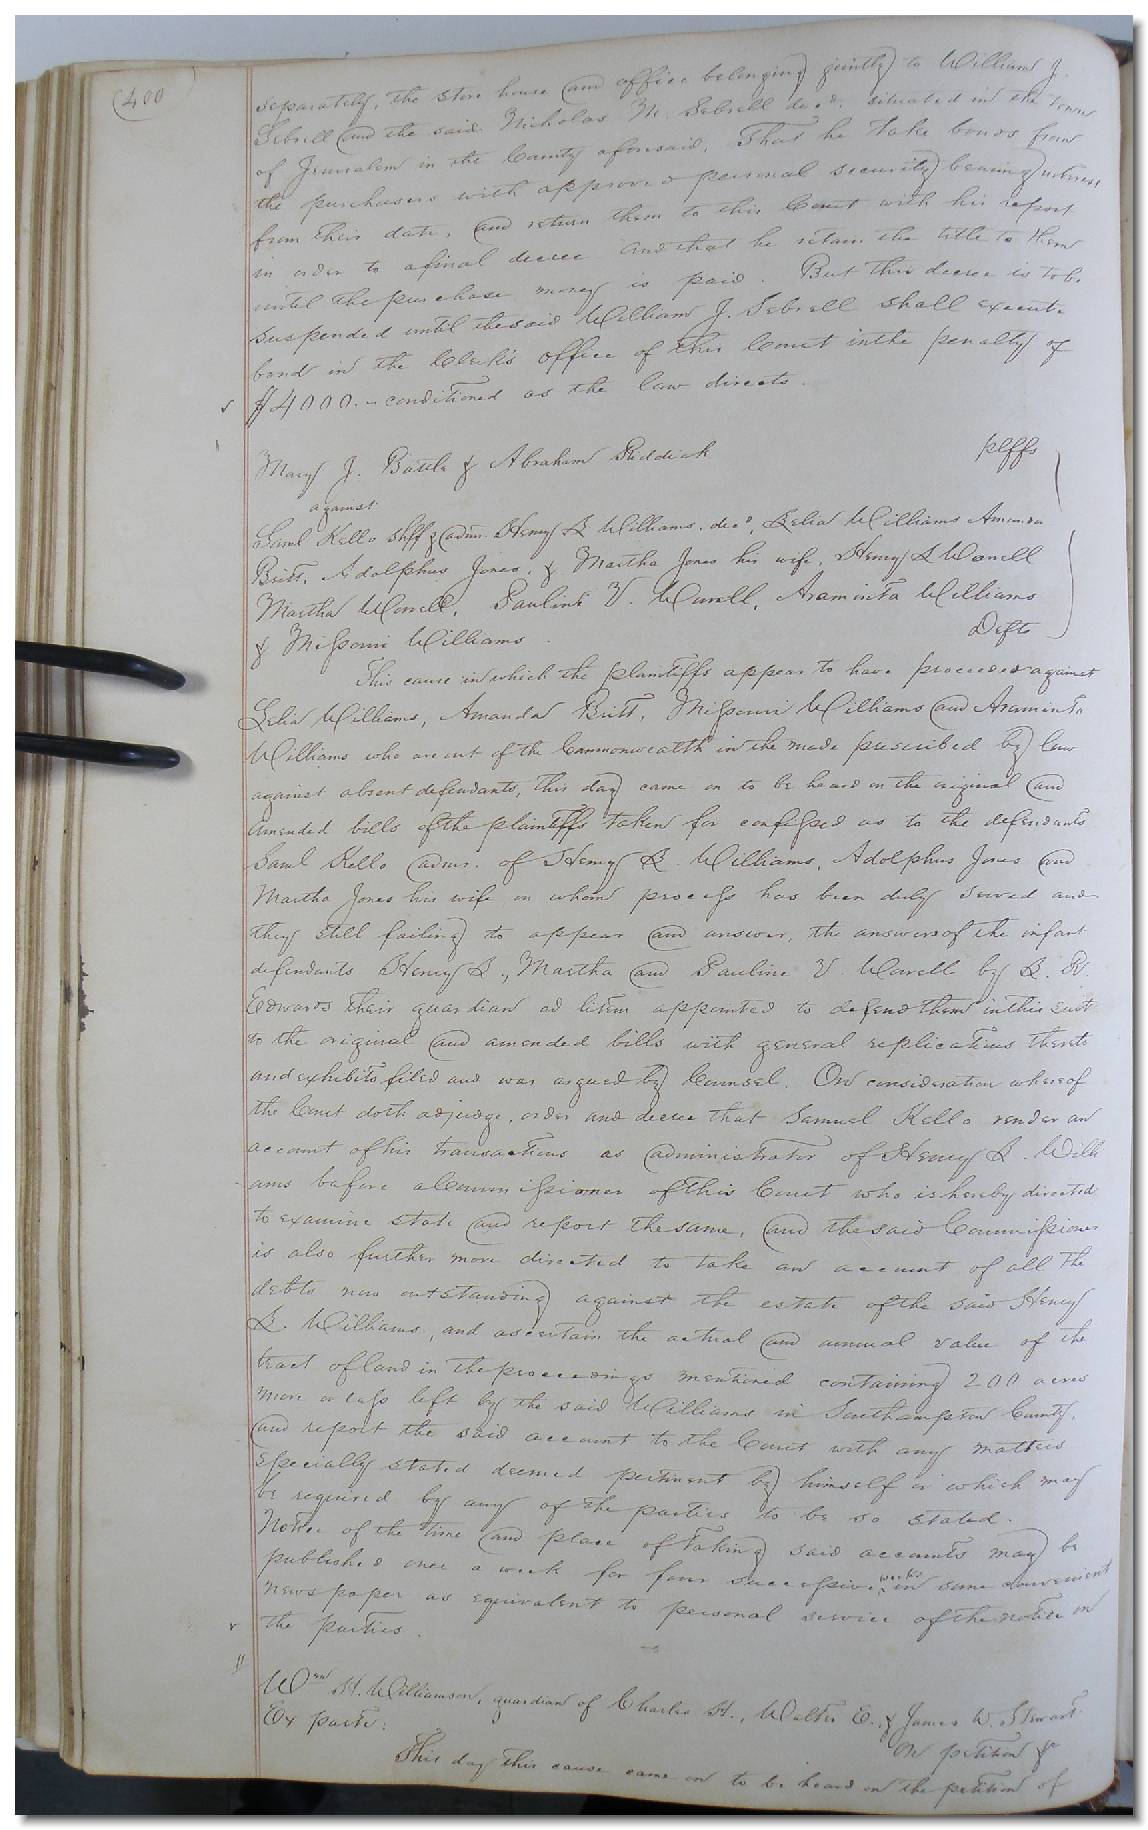 400
separately, the store house and office belonging jointly to William J.
Sebrell and the said Nicholas M. Sebrell decd. situated in the Town
of Jerusalem in the County aforesaid, That he take bonds from
the purchasers with approved personal security bearing interest
from their date, and return them to this Court with his report
in order to a final decree and that he retain the title to them
until the purchase money is paid. But this decree is to be
suspended until the said William J. Sebrell shall execute
bond in the Clerk's office of this Court in the penalty of
$4000.- conditioned as the law directs.
Mary J. Battle & Abraham Riddick plffs
against
Saml Kello Shff & admr. Henry L Williams, decd, Lelia Williams Amanda
Britt, Adolphus Jones, & Martha Jones his wife, Henry L Worrell
Martha Worrell, Pauline V. Worrell, Araminta Williams
& Missouri Williams. Defts
This cause in which the plaintiffs appear to have proceeded against
Lelia Williams, Amanda Britt, Missouri Williams and Araminta
Williams who are out of the Commonwealth in the mode prescribed by law
against absent defendants, this day came on to be heard on the original and
amended bills of the plaintiffs taken for confessed as to the defendants
Saml Kello admr. of Henry L. Williams, Adolphus Jones and
Martha Jones his wife on whom process has been duly served and
they still failing to appear and answer, the answers of the infant
defendants Henry L., Martha and Pauline V. Worrell by L. R.
Edwards their guardian ad litem appointed to defend them in this suit
to the original and amended bills with general replications thereto
and exhibits filed and was argued by Counsel. On consideration whereof
the Court doth adjudge, order and decree that Samuel Kello render an
account of his transactions as administrator of Henry L. Willi
ams before a Commissioner of this Court who is hereby directed
to examine state and report the same, and the said Commissioner
is also further more directed to take an account of all the
debts now outstanding against the estate of the said Henry
L. Williams, and ascertain the actual and annual value of the
tract of land in the proceedings mentioned containing 200 acres
more or less left by the said Williams in Southampton County,
and report the said account to the Court with any matters
specially stated deemed pertinent by himself or which may
be required by any of the parties to be so stated.
Notice of the time and place of taking said accounts may be
published once a week for four successive weeks in some convenient
newspaper as equivalent to personal service of the notice on
the parties.
Wm H. Williamson, guardian of Charles H., Walter E. & James W. Stewart
Ex parte: On petition &c
This day this cause came on to be heard on the petition of